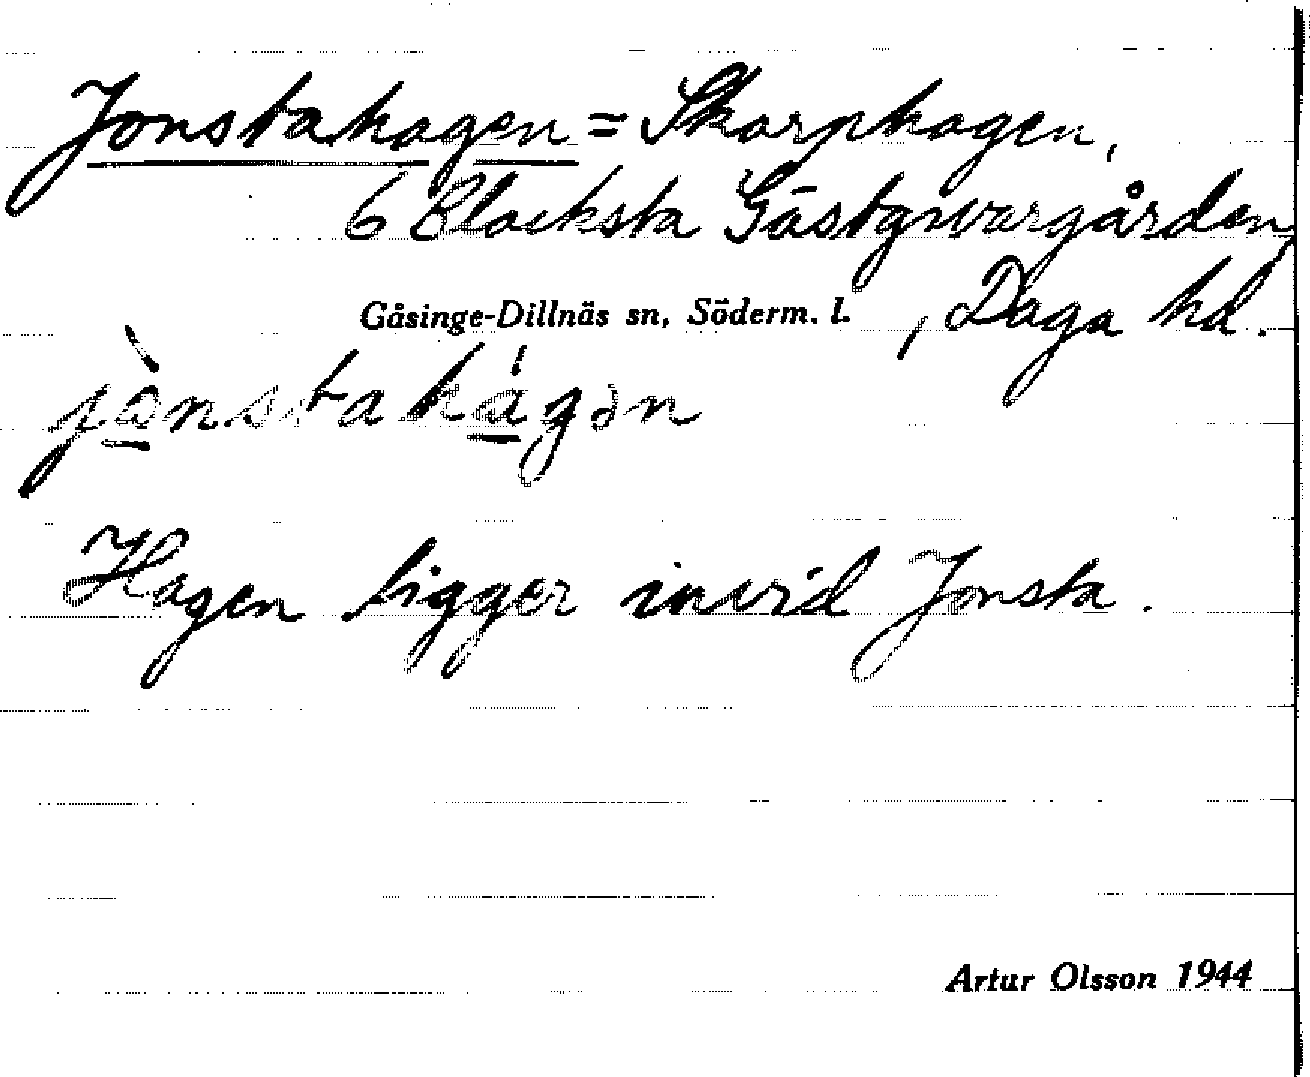 Jonstahagen = Skarphagen,
6 Blacksta Gästgivargården,
Gåsinge-Dillnäs sn, Söderm. l. , Daga hd.
jònstahágən
Hagen ligger invid Jonsta.
Artur Olsson 1944